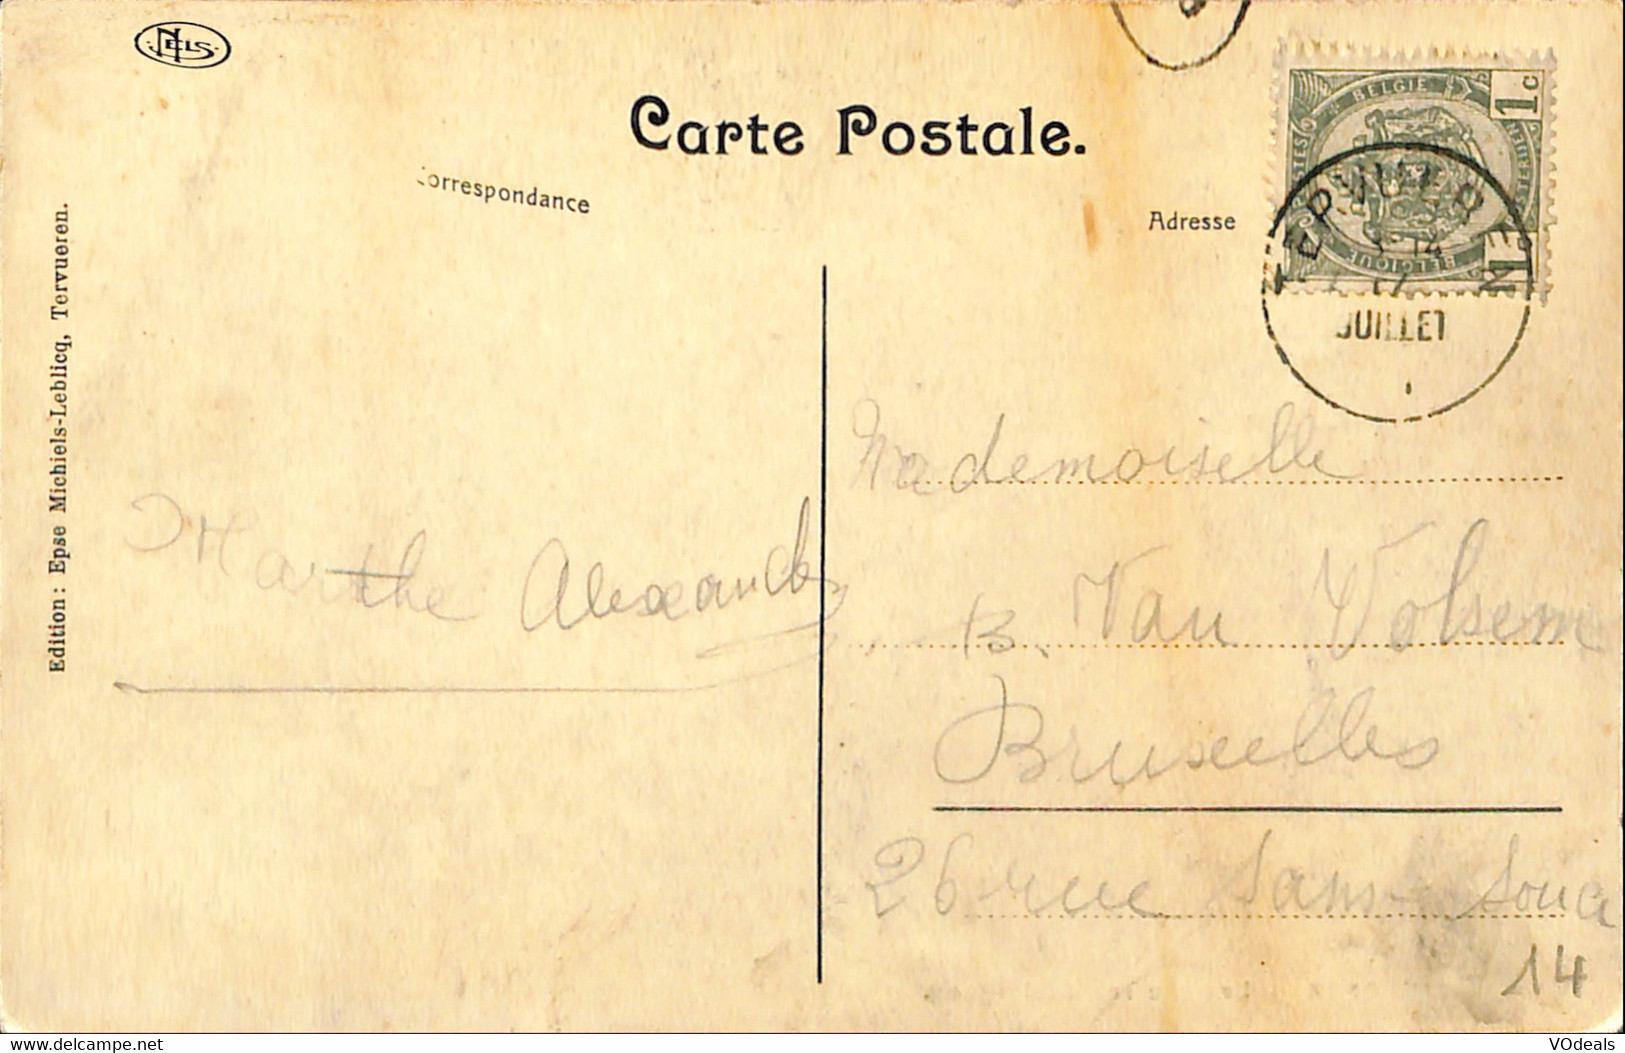 NELS
Carte Postale.
orrespondance
Adresse
BELGIE
1c
BELGIQUE
TERVUEREN
JUILLET
Edition: Epse Michiels-Leblicq, Tervueren.
Marthe
Mademoiselle
B. Van Volsem
Bruxelles
26 rue Sans-Souci
14
www.delcampe.net
VOdeals